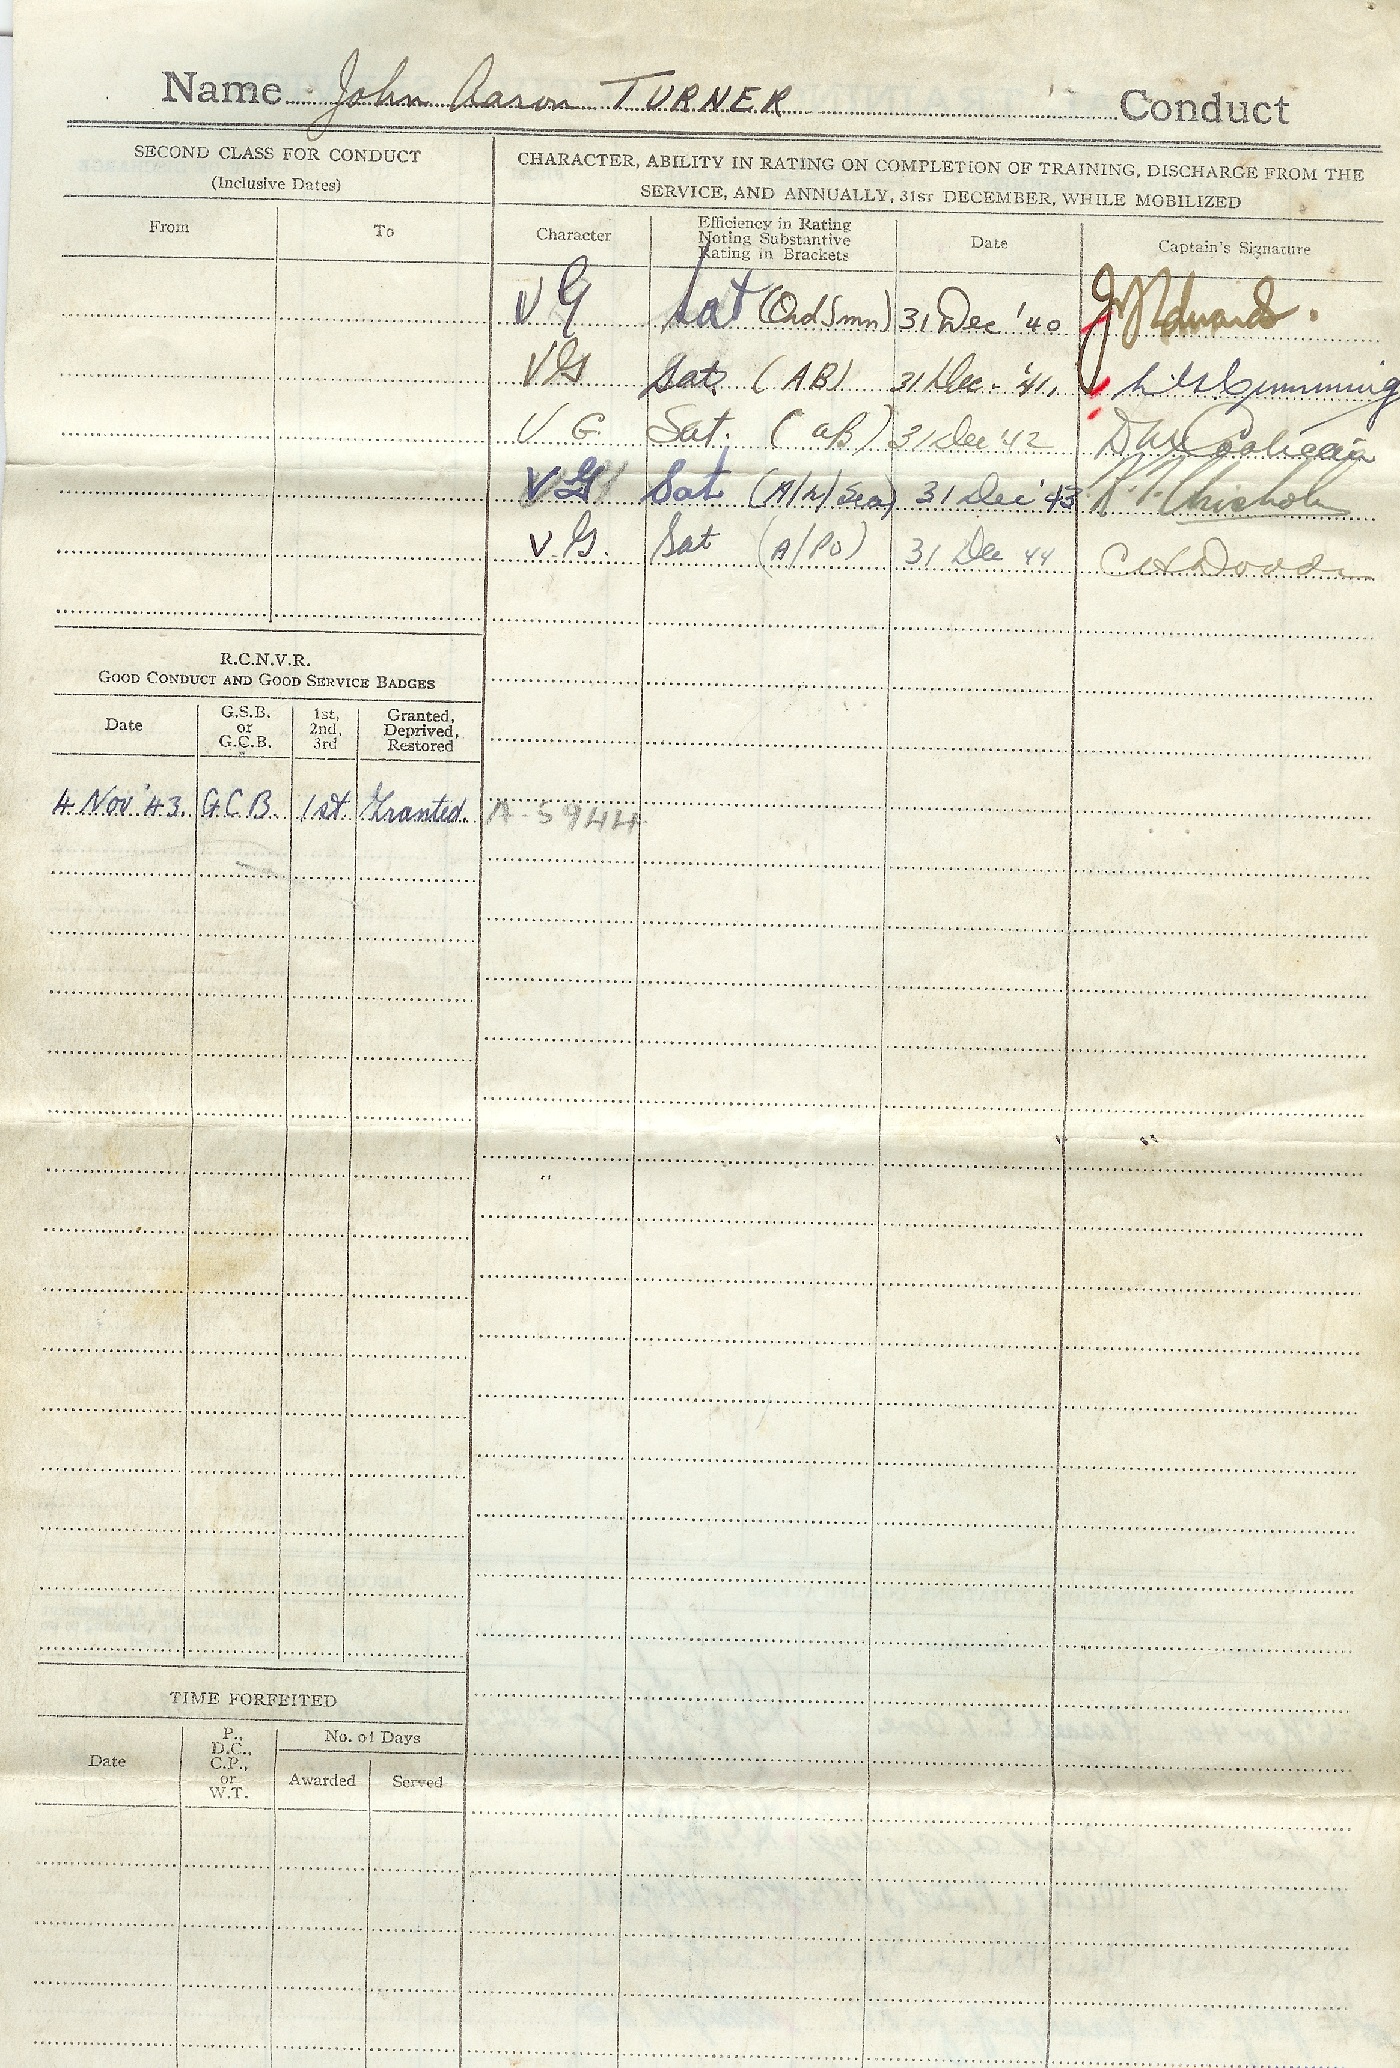 Name John Aaron TURNER Conduct
SECOND CLASS FOR CONDUCT
(Inclusive Dates)
From To
CHARACTER, ABILITY IN RATING ON COMPLETION OF TRAINING, DISCHARGE FROM THE
SERVICE, AND ANNUALLY, 31ST DECEMBER, WHILE MOBILIZED
Character
Efficiency in Rating
Noting Substantive
Rating in Brackets
Date
Captain's Signature
VG Sat (Ord Smn) 31 Dec '40 Edwards.
VG Sat. (AB) 31 Dec. '41. Cumming
VG Sat. (AB) 31 Dec '42
VG Sat (A/L/Sea) 31 Dec '43 Chisholm
V.G. Sat (A/PO) 31 Dec 44
R.C.N.V.R.
GOOD CONDUCT AND GOOD SERVICE BADGES
Date
G.S.B.
or
G.C.B.
1st,
2nd,
3rd
Granted,
Deprived,
Restored
4 Nov '43. G.C.B. 1st. Granted. A-5944
TIME FORFEITED
Date
P.,
D.C.,
C.P.,
or
W.T.
No. of Days
Awarded Served